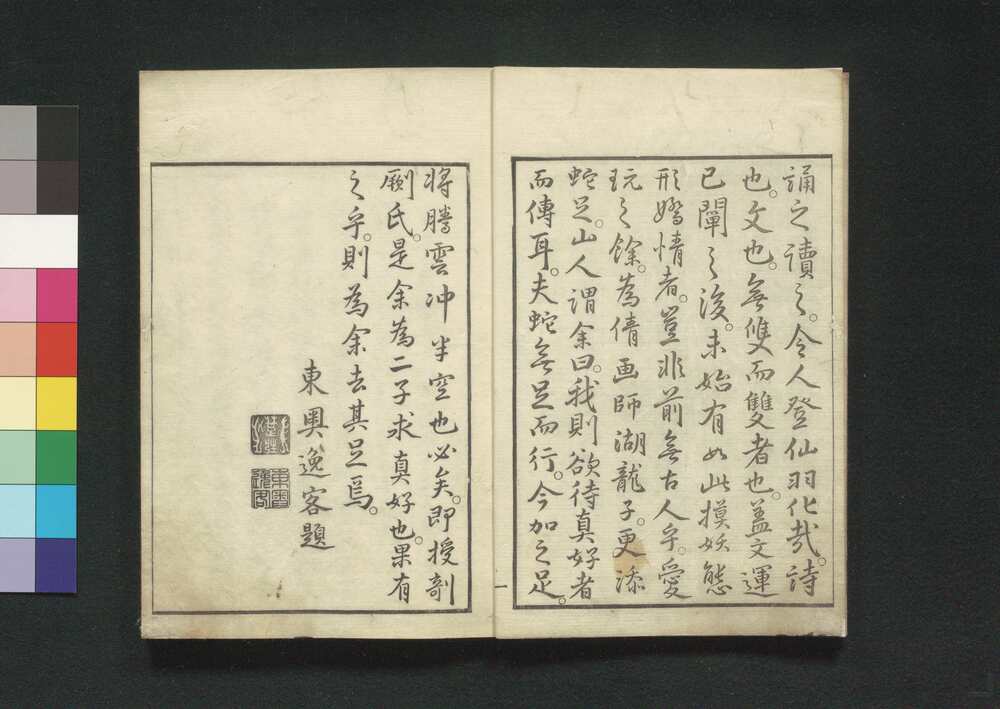 誦之讀之。令人登仙羽化哉。詩
也。文也。無隻而雙者也。蓋文運
已闡之後。未始有如此摸妖態
形嬌情者。豈非前無古人乎。愛
玩之餘。為倩画師湖龍子。更添
蛇足。山人謂余曰。我則欲待真好者
而傳耳。夫蛇無足而行。今加之足。
将騰雲冲半空也必矣。即授剞
劂氏。是余為二子求真好也。果有
之乎。則為余去其足焉。
東奥逸客題
東奥
逸客